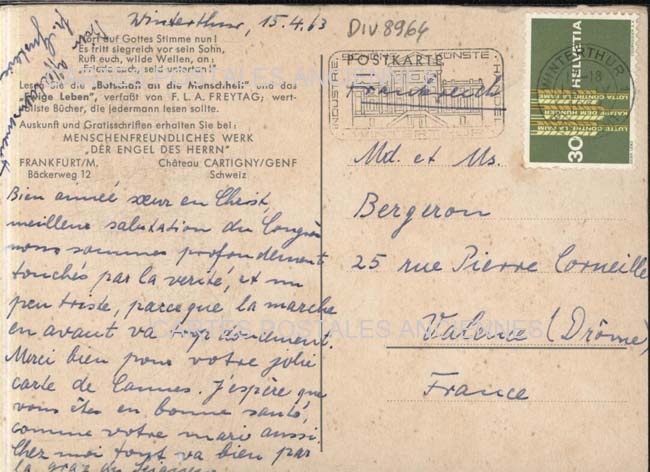 Winterthur, 15.4.63
DIV8964
Hört auf Gottes Stimme nun!
Es tritt siegreich vor sein Sohn,
Ruft euch, wilde Wellen, an:
Friede euch, seid untertan!"
Lesen Sie die „Botschaft an die Menschheit" und das
„Ewige Leben", verfaßt von F. L. A. FREYTAG; wert-
vollste Bücher, die jedermann lesen sollte.
Auskunft und Gratisschriften erhalten Sie bei:
MENSCHENFREUNDLICHES WERK
„DER ENGEL DES HERRN"
FRANKFURT/M. Château CARTIGNY/GENF
Bäckerweg 12 Schweiz
Bien aimée sœur en Christ,
meilleure salutation du Congrès
nous sommes profondement
touchés par la verité, et un
peu triste, parceque la marche
en avant va trop doucement.
Merci bien pour votre jolie
carte de Cannes. J'espère que
vous êtes en bonne santé,
comme votre mari aussi.
Chez moi tout va bien par
la grâce du Seigneur
POSTKARTE
INDUSTRIE KÜNSTE HANDEL
WINTERTHUR
Frankreich
WINTERTHUR
-18
HELVETIA
30
LUTTE CONTRE LA FAIM
KAMPF DEM HUNGER
LOTTA CONTRO LA FAME
Md. et Ms.
Bergeron
25 rue Pierre Corneille
Valence (Drôme)
France
CARTES POSTALES ANCIENNES